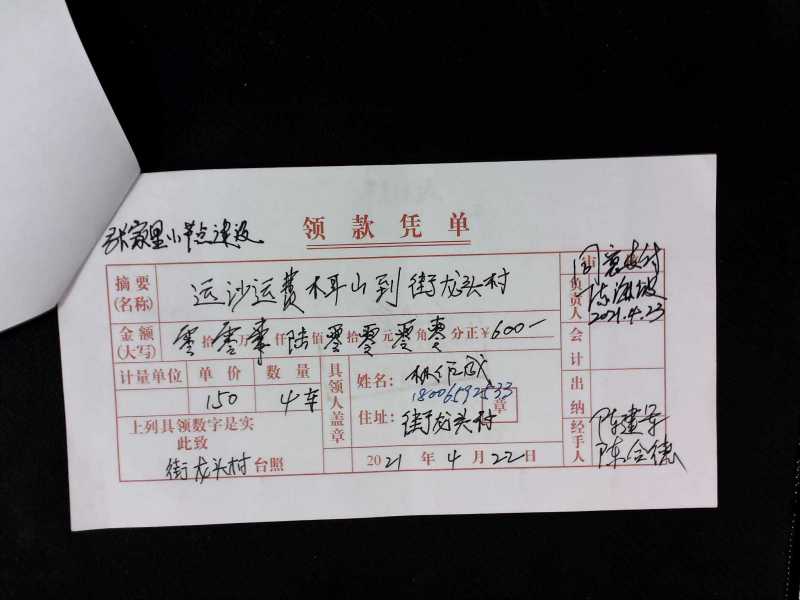 张家里小节点建设
领款凭单
摘要(名称) 运沙运费 木耳山到街龙头村
金额(大写) 零拾零万零仟陆佰零拾零元零角零分正¥600—
计量单位 单价 数量
150 4车
上列具领数字是实
此致
街龙头村台照
具领人盖章
姓名:
18006592533
住址: 街龙头村 章
2021年4月22日
负责人 同意支付
2021.4.23
会计
出纳
经手人 陈建
陈合德